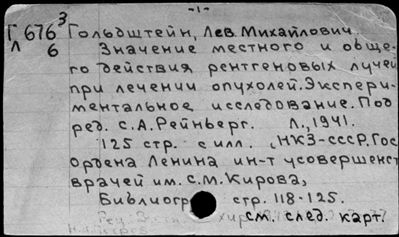 -1-
Г 676³ Гольдштейн, Лев Михайлович.
Л 6 Значение местного и обще-
го действия рентгеновых лучей
при лечении опухолей. Экспери-
ментальное исследование. Под
ред. С.А. Рейнберг. Л., 1941.
125 стр. с илл. (НКЗ-СССР. Гос
ордена Ленина ин-т усовершенст
врачей им. С.М. Кирова,
Библиогр стр. 118-125.
см. след. карт.